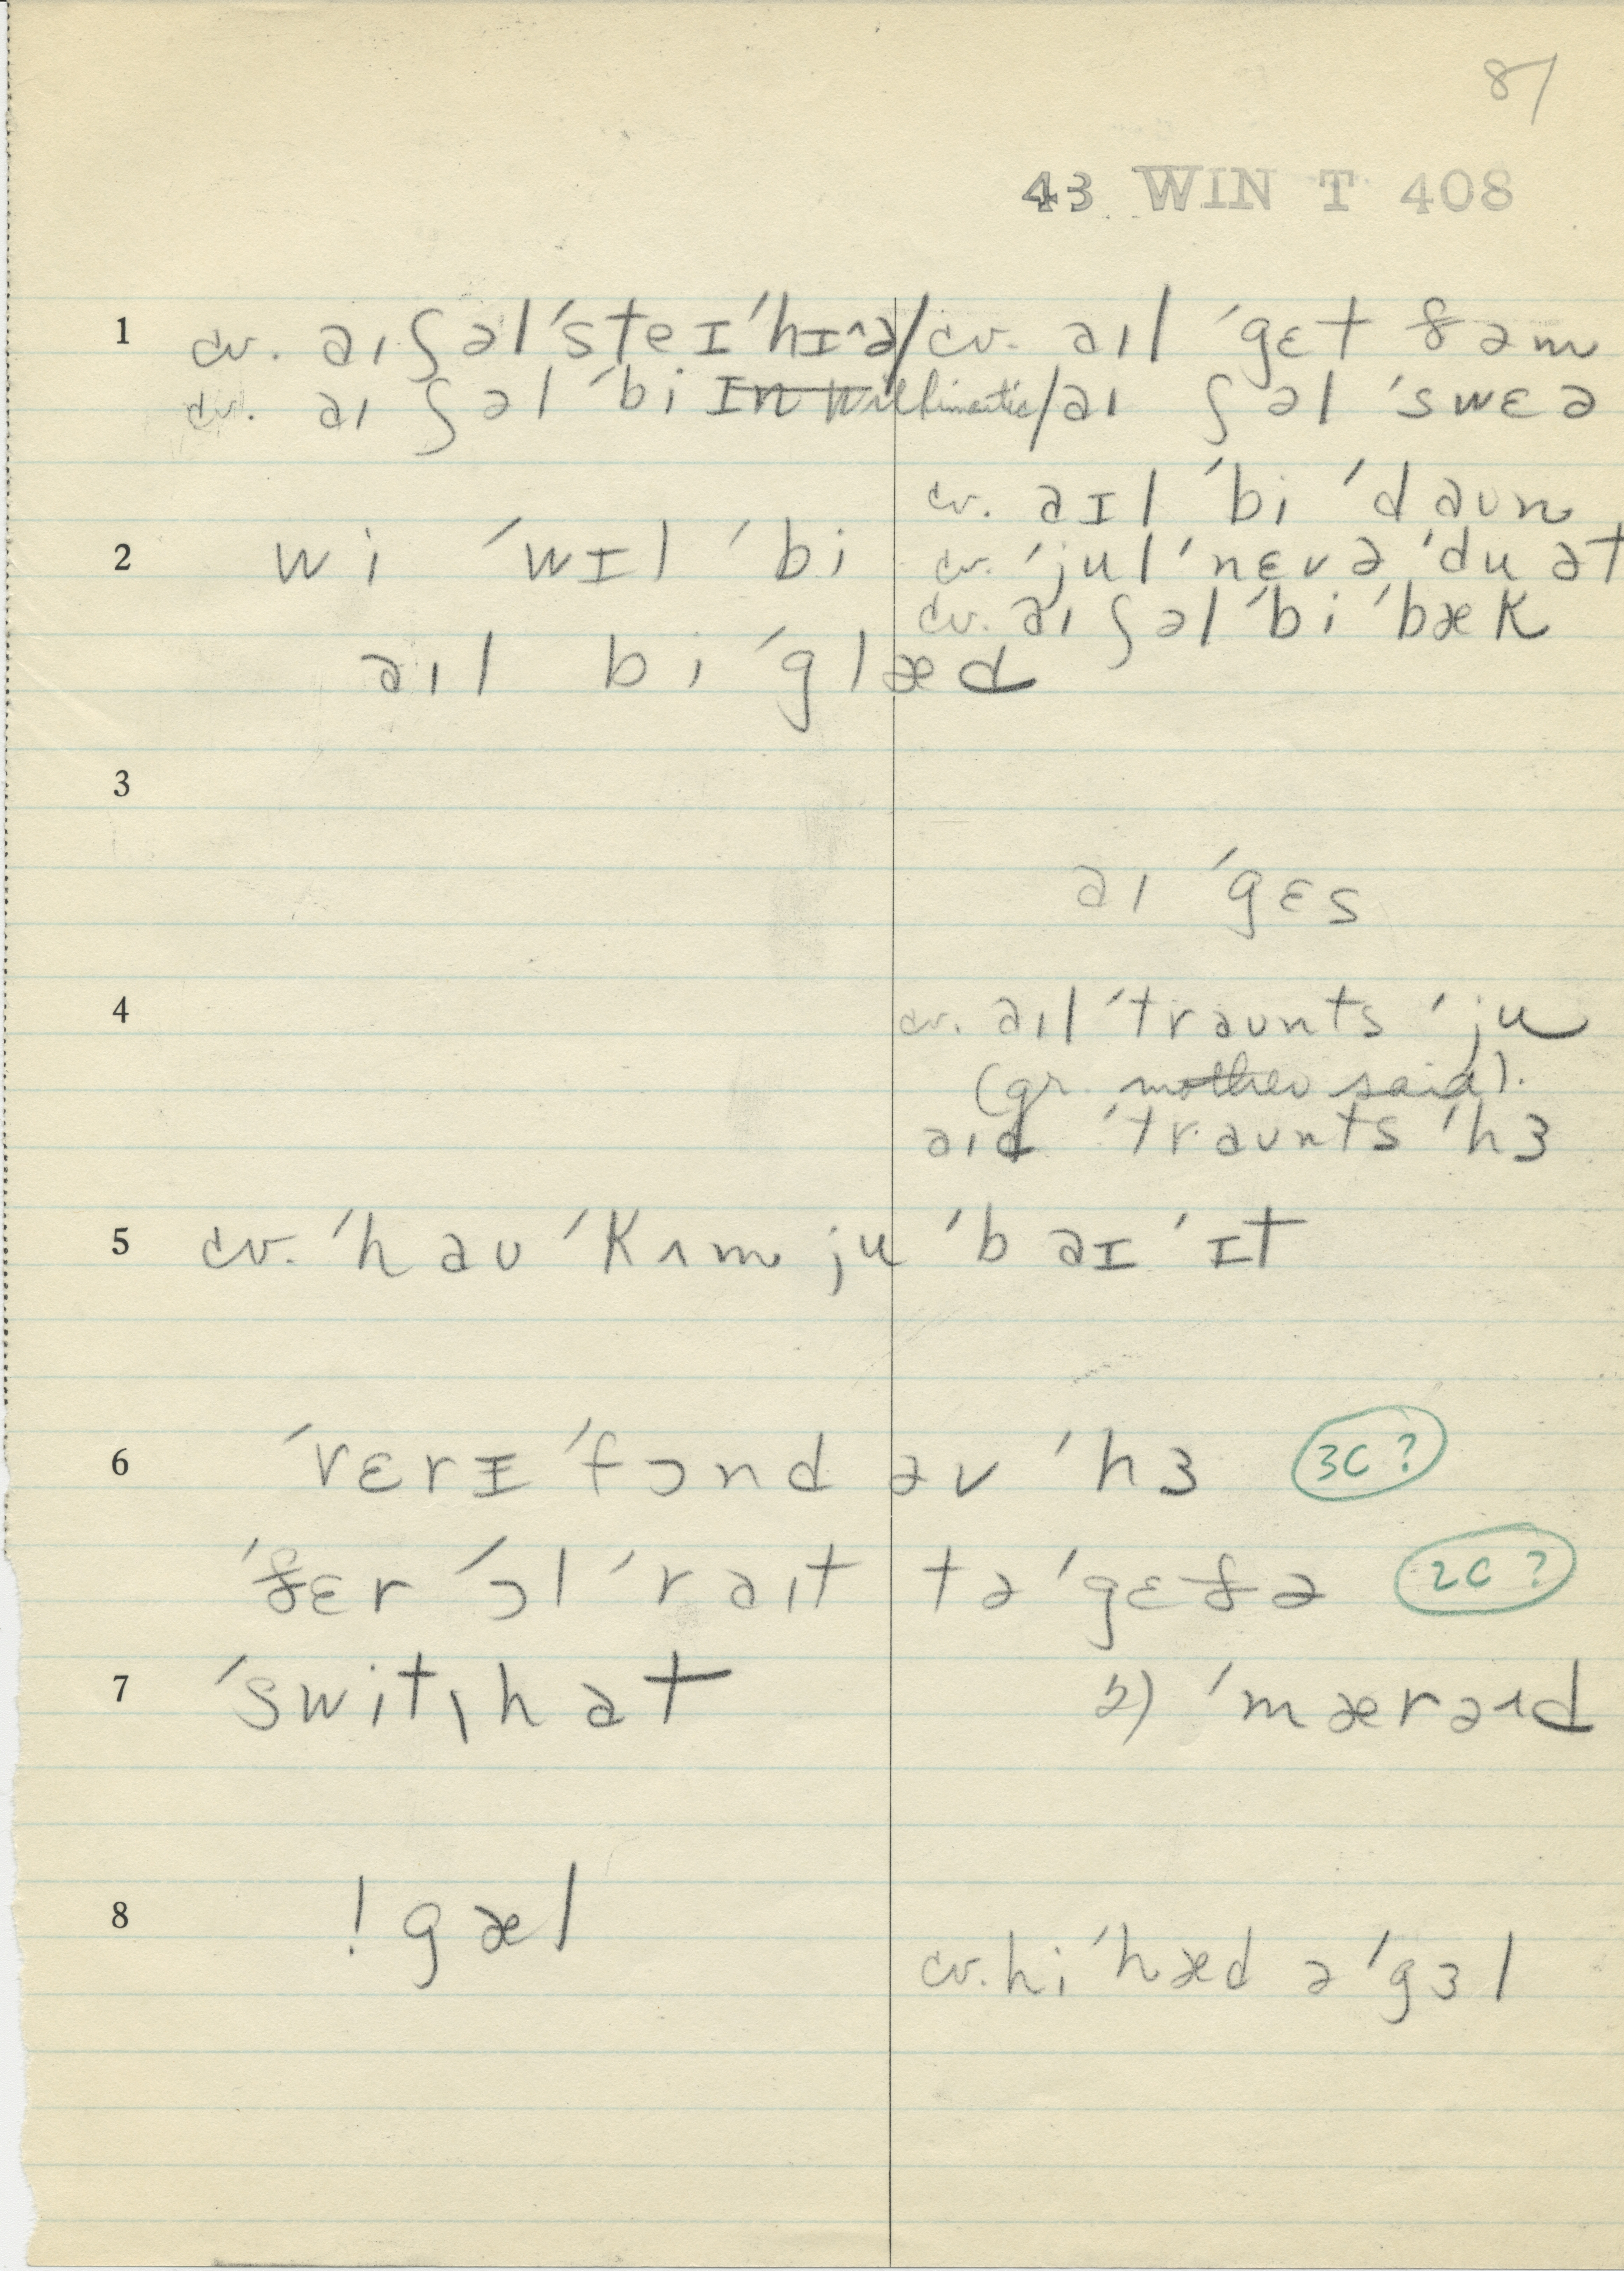 87
43 WIN T 408
1 cv. aɪ ʃəl ˈsteɪ ˈhɪ^ə / cv. aɪl ˈgɛt ðəm
cv. aɪ ʃəl ˈbi ɪn Willimantic / aɪ ʃəl ˈswɛə
cv. aɪl ˈbi ˈdaun
2 wi ˈwɪl ˈbi
cv. ˈjul ˈnɛvə ˈdu ət
cv. aɪ ʃəl ˈbi ˈbæk
aɪl bi ˈglæd
3
aɪ ˈgɛs
4 cv. aɪl ˈtraunts ˈju
(gr. mother said).
aɪd ˈtraunts ˈhɜ
5 cv. ˈhau ˈkʌm ju ˈbaɪ ˈɪt
6 ˈvɛrɪ ˈfɔnd əv ˈhɜ 3C ?
ˈðɛr ˈɔl ˈraɪt təˈgɛðə 2C ?
7 ˈswit,hat 2) ˈmæraɪd
8 ! gæl
cv. hi ˈhæd ə ˈgɜl